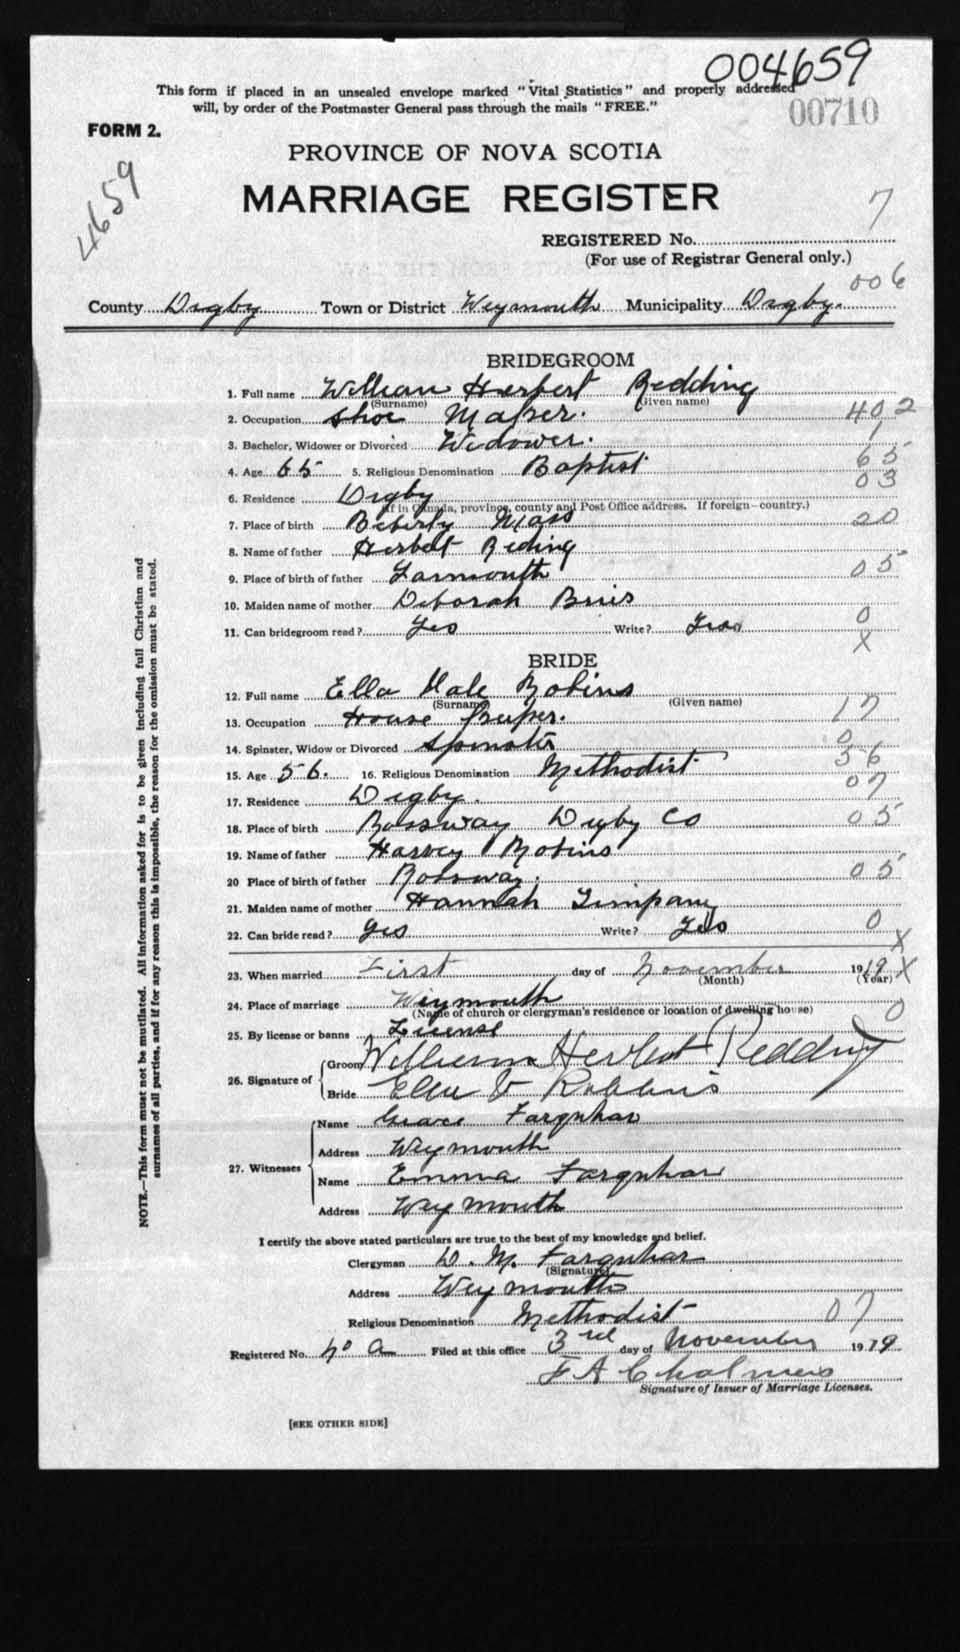 004659
This form if placed in an unsealed envelope marked "Vital Statistics" and properly addressed
will, by order of the Postmaster General pass through the mails "FREE."
00710
FORM 2.
4659
PROVINCE OF NOVA SCOTIA
MARRIAGE REGISTER
7
REGISTERED No.
(For use of Registrar General only.)
006
County Digby Town or District Weymouth Municipality Digby.
BRIDEGROOM
1. Full name William Herbert Redding
(Surname) (Given name)
2. Occupation Shoe Maker. 402
3. Bachelor, Widower or Divorced Widower. 1
4. Age 65 5. Religious Denomination Baptist 65
6. Residence Digby 03
(If in Canada, province, county and Post Office address. If foreign—country.)
7. Place of birth Beberly Mass 20
8. Name of father Herbert Reding
9. Place of birth of father Yarmouth 05
10. Maiden name of mother Deborah
11. Can bridegroom read? Yes Write? Yes 0
X
BRIDE
12. Full name Ella Hale Robins
(Surname) (Given name)
13. Occupation House Keeper. 17
14. Spinster, Widow or Divorced Spinster 0
15. Age 56. 16. Religious Denomination Methodist 56
17. Residence Digby. 07
18. Place of birth Rossway Digby Co 05
19. Name of father Harvey Robins
20 Place of birth of father Rossway. 05
21. Maiden name of mother Hannah Timpany
22. Can bride read? Yes Write? Yes 0
X
23. When married First day of November 1919 X
(Month) (Year)
24. Place of marriage Weymouth
(Name of church or clergyman's residence or location of dwelling house) 0
25. By license or banns License
26. Signature of Groom William Herbert Redding
Bride Ella V Robbins
27. Witnesses Name Grace Farquhar
Address Weymouth
Name Emma Farquhar
Address Weymouth
I certify the above stated particulars are true to the best of my knowledge and belief.
Clergyman W. M. Farquhar
(Signature)
Address Weymouth
Religious Denomination Methodist 07
Registered No. Filed at this office 3rd day of November 1919
F A Chalmers
Signature of Issuer of Marriage Licenses.
[SEE OTHER SIDE]
NOTE.—This form must not be mutilated. All information asked for is to be given including full Christian and
surnames of all parties, and if for any reason this is impossible, the reason for the omission must be stated.